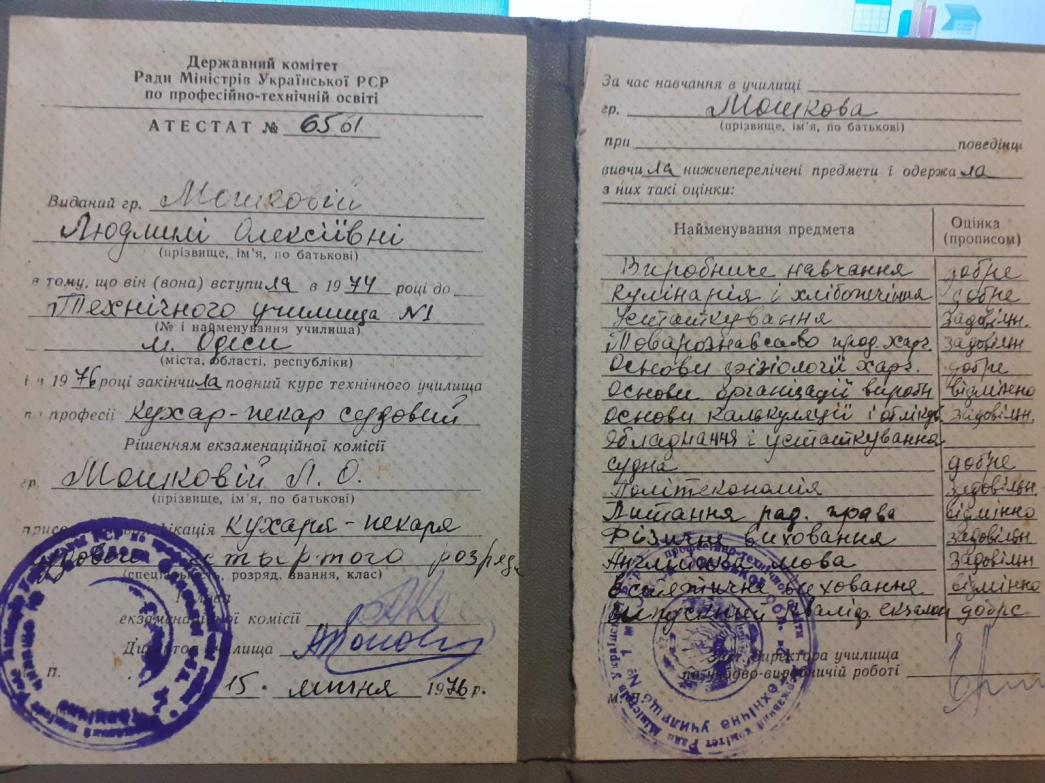 Державний комітет
Ради Міністрів Української РСР
по професійно-технічній освіті
АТЕСТАТ № 6561
Виданий гр. Мошковій
Людмилі Олексіївні
(прізвище, ім'я, по батькові)
в тому, що він (вона) вступила в 1974 році до
Технічного училища №1
(№ і найменування училища)
м. Одеси
(міста, області, республіки)
і в 1976 році закінчила повний курс технічного училища
по професії кухар-пекар судовий
Рішенням екзаменаційної комісії
гр. Мошковій Л. О.
(прізвище, ім'я, по батькові)
кваліфікація кухаря-пекаря
четвертого розряду
(спеціальність, розряд, звання, клас)
Голова
екзаменаційної комісії
Директор училища
15. липня 1976 р.
За час навчання в училищі
гр. Мошкова
(прізвище, ім'я, по батькові)
при поведінці
вивчила нижчеперелічені предмети і одержала
з них такі оцінки:
Найменування предмета Оцінка (прописом)
Виробниче навчання добре
Кулінарія і хлібопечіння добре
Устаткування задовільн.
Товарознавство прод. харч. задовільн
Основи фізіології харч. добре
Основи організації вироб відмінно
Основи калькуляції і облік задовільн.
Обладнання і устаткування
судна добре
Політекономія задовільн.
Питання рад. права відмінно
Фізичне виховання задовільн
Англійська мова задовільн
Естетичне виховання відмінно
екзамен добре
Заст. директора училища
по учбово-виробничій роботі